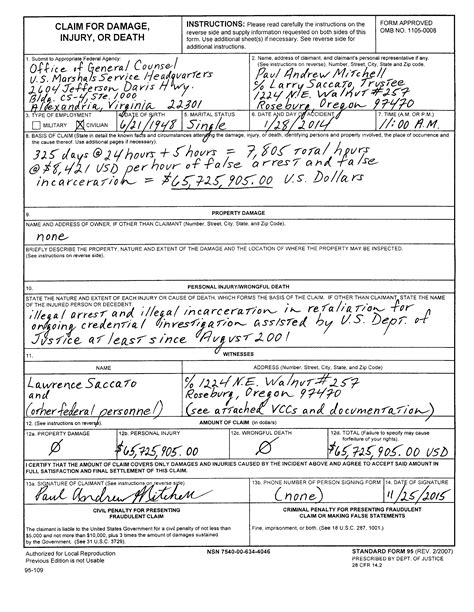 CLAIM FOR DAMAGE,
INJURY, OR DEATH
INSTRUCTIONS: Please read carefully the instructions on the
reverse side and supply information requested on both sides of this
form. Use additional sheet(s) if necessary. See reverse side for
additional instructions.
FORM APPROVED
OMB NO. 1105-0008
1. Submit to Appropriate Federal Agency:
Office of General Counsel
U.S. Marshals Service Headquarters
2604 Jefferson Davis Hwy.
Bldg. CS-4, Ste. 1000
Alexandria, Virginia 22301
2. Name, address of claimant, and claimant's personal representative if any.
(See instructions on reverse). Number, Street, City, State and Zip code.
Paul Andrew Mitchell
c/o Larry Saccato, Trustee
1224 N.E. Walnut #257
Roseburg, Oregon 97470
3. TYPE OF EMPLOYMENT
MILITARY X CIVILIAN
4. DATE OF BIRTH
6/21/1948
5. MARITAL STATUS
Single
6. DATE AND DAY OF ACCIDENT
1/28/2014
7. TIME (A.M. OR P.M.)
11:00 A.M.
8. BASIS OF CLAIM (State in detail the known facts and circumstances attending the damage, injury, or death, identifying persons and property involved, the place of occurrence and
the cause thereof. Use additional pages if necessary).
325 days @ 24 hours + 5 hours = 7,805 total hours
@ $8,421 USD per hour of false arrest and false
incarceration = $65,725,905.00 U.S. Dollars
9. PROPERTY DAMAGE
NAME AND ADDRESS OF OWNER, IF OTHER THAN CLAIMANT (Number, Street, City, State, and Zip Code).
none
BRIEFLY DESCRIBE THE PROPERTY, NATURE AND EXTENT OF THE DAMAGE AND THE LOCATION OF WHERE THE PROPERTY MAY BE INSPECTED.
(See instructions on reverse side).
10. PERSONAL INJURY/WRONGFUL DEATH
STATE THE NATURE AND EXTENT OF EACH INJURY OR CAUSE OF DEATH, WHICH FORMS THE BASIS OF THE CLAIM. IF OTHER THAN CLAIMANT, STATE THE NAME
OF THE INJURED PERSON OR DECEDENT.
illegal arrest and illegal incarceration in retaliation for
ongoing credential investigation assisted by U.S. Dept. of
Justice at least since August 2001
11. WITNESSES
NAME
ADDRESS (Number, Street, City, State, and Zip Code)
Lawrence Saccato
and
(other federal personnel)
c/o 1224 N.E. Walnut #257
Roseburg, Oregon 97470
(see attached VCCs and documentation)
12. (See instructions on reverse).
AMOUNT OF CLAIM (in dollars)
12a. PROPERTY DAMAGE
Ø
12b. PERSONAL INJURY
$65,725,905.00
12c. WRONGFUL DEATH
Ø
12d. TOTAL (Failure to specify may cause
forfeiture of your rights).
$65,725,905.00 USD
I CERTIFY THAT THE AMOUNT OF CLAIM COVERS ONLY DAMAGES AND INJURIES CAUSED BY THE INCIDENT ABOVE AND AGREE TO ACCEPT SAID AMOUNT IN
FULL SATISFACTION AND FINAL SETTLEMENT OF THIS CLAIM.
13a. SIGNATURE OF CLAIMANT (See instructions on reverse side)
Paul Andrew Mitchell
13b. PHONE NUMBER OF PERSON SIGNING FORM
(none)
14. DATE OF SIGNATURE
11/25/2015
CIVIL PENALTY FOR PRESENTING
FRAUDULENT CLAIM
The claimant is liable to the United States Government for a civil penalty of not less than
$5,000 and not more than $10,000, plus 3 times the amount of damages sustained
by the Government. (See 31 U.S.C. 3729).
CRIMINAL PENALTY FOR PRESENTING FRAUDULENT
CLAIM OR MAKING FALSE STATEMENTS
Fine, imprisonment, or both. (See 18 U.S.C. 287, 1001.)
Authorized for Local Reproduction
Previous Edition is not Usable
95-109
NSN 7540-00-634-4046
STANDARD FORM 95 (REV. 2/2007)
PRESCRIBED BY DEPT. OF JUSTICE
28 CFR 14.2